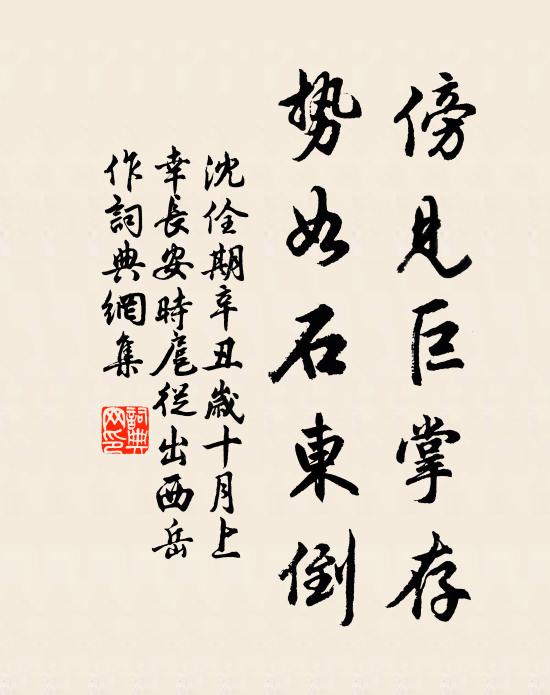 傍見巨掌存
勢如石東倒
沈佺期辛丑歲十月上
幸長安時扈從出西岳
作詞典網集
詞典
网印